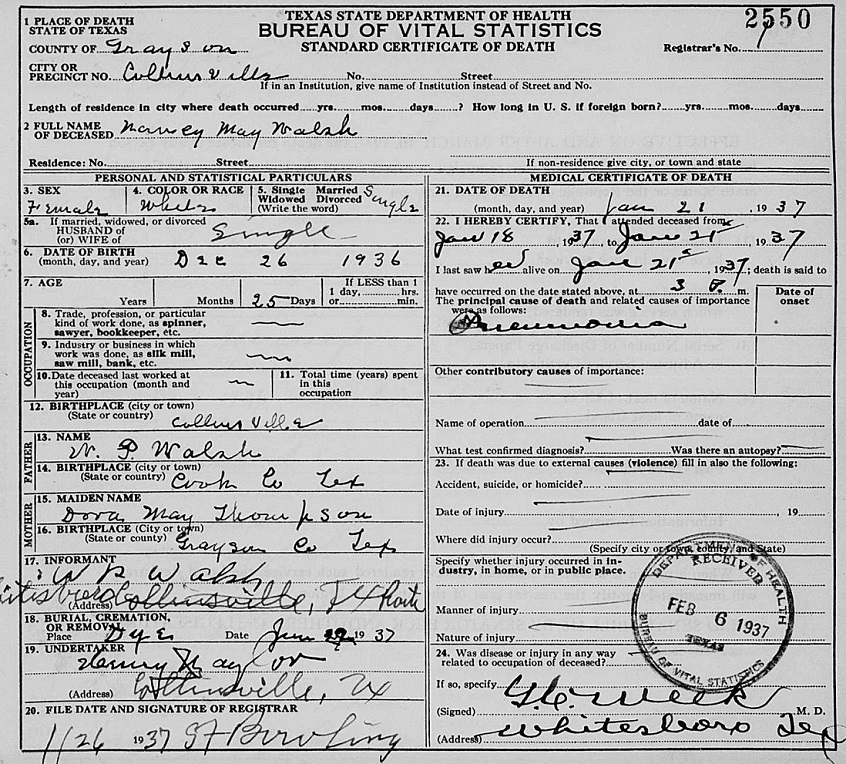 TEXAS STATE DEPARTMENT OF HEALTH
BUREAU OF VITAL STATISTICS
STANDARD CERTIFICATE OF DEATH
2550
Registrar's No. 1
1 PLACE OF DEATH
STATE OF TEXAS
COUNTY OF Grayson
CITY OR
PRECINCT NO. Collinsville No. Street
If in an Institution, give name of Institution instead of Street and No.
Length of residence in city where death occurred yrs. mos. days ? How long in U. S. if foreign born? yrs. mos. days
2 FULL NAME
OF DECEASED Nancy May Walsh
Residence: No. Street If non-residence give city, or town and state
PERSONAL AND STATISTICAL PARTICULARS
3. SEX
Female
4. COLOR OR RACE
White
5. Single Married
Widowed Divorced
(Write the word)
Single
5a. If married, widowed, or divorced
HUSBAND of
(or) WIFE of
Single
6. DATE OF BIRTH
(month, day, and year) Dec 26 1936
7. AGE
Years Months 25 Days
If LESS than 1
1 day, hrs.
or min.
OCCUPATION
8. Trade, profession, or particular
kind of work done, as spinner,
sawyer, bookkeeper, etc.
9. Industry or business in which
work was done, as silk mill,
saw mill, bank, etc.
10. Date deceased last worked at
this occupation (month and
year)
11. Total time (years) spent
in this
occupation
12. BIRTHPLACE (city or town)
(State or country) Collinsville
FATHER
13. NAME
W. P. Walsh
14. BIRTHPLACE (city or town)
(State or country) Cook Co Tex
MOTHER
15. MAIDEN NAME
Dora May Thompson
16. BIRTHPLACE (City or town)
(State or country) Grayson Co Tex
17. INFORMANT
W P Walsh
(Address) Collinsville, Tx Route
18. BURIAL, CREMATION,
OR REMOVAL
Place Dye Date Jan 22 1937
19. UNDERTAKER
Henry Naylor
(Address) Collinsville, Tx
20. FILE DATE AND SIGNATURE OF REGISTRAR
1/26 1937
MEDICAL CERTIFICATE OF DEATH
21. DATE OF DEATH
(month, day, and year) Jan 21, 1937
22. I HEREBY CERTIFY, That I attended deceased from
Jan 18 1937, to Jan 21st, 1937
I last saw her alive on Jan 21st, 1937; death is said to
have occurred on the date stated above, at 3 P. m.
The principal cause of death and related causes of importance
were as follows:
Date of
onset
Pneumonia
Other contributory causes of importance:
Name of operation date of
What test confirmed diagnosis? Was there an autopsy?
23. If death was due to external causes (violence) fill in also the following:
Accident, suicide, or homicide?
Date of injury , 19
Where did injury occur?
(Specify city or town, county, and State)
Specify whether injury occurred in industry, in home, or in public place.
Manner of injury
Nature of injury
24. Was disease or injury in any way
related to occupation of deceased?
If so, specify
(Signed) M. D.
(Address) Whitesboro Tex
DEPARTMENT OF HEALTH
RECEIVED
FEB 6 1937
TEXAS
BUREAU OF VITAL STATISTICS